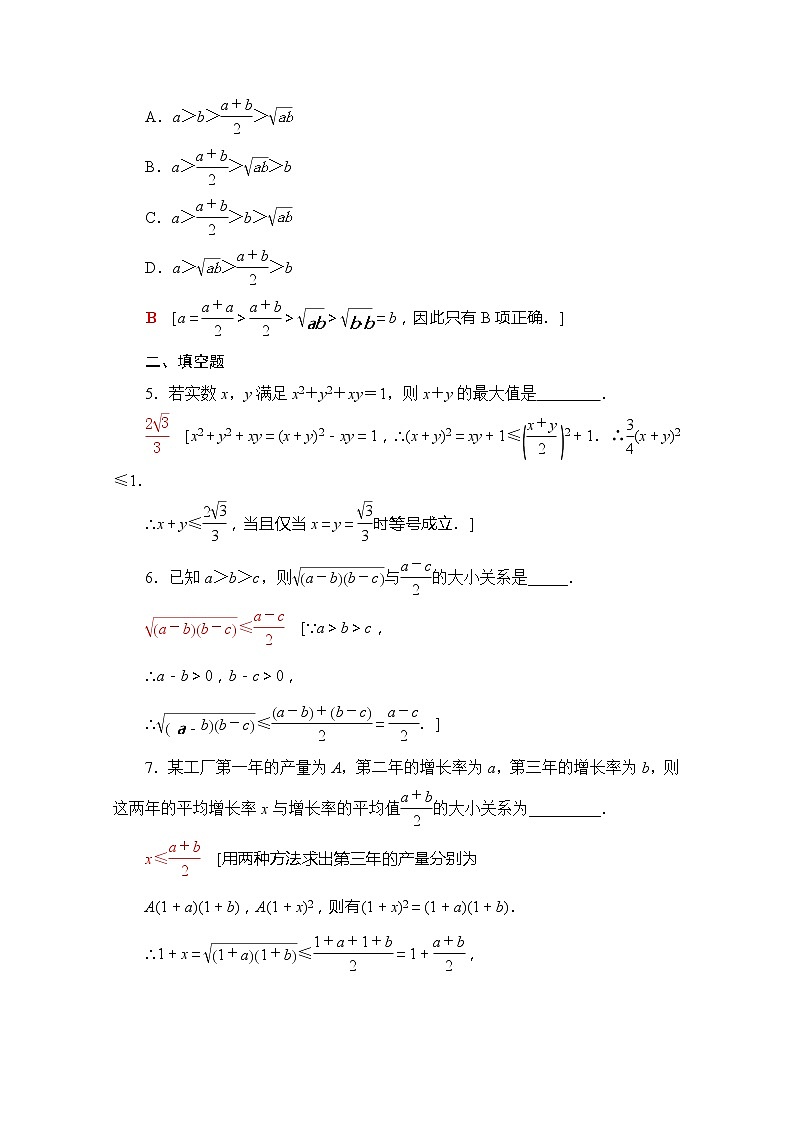 A．a＞b＞\frac{a＋b}{2}＞\sqrt{ab}
B．a＞\frac{a＋b}{2}＞\sqrt{ab}＞b
C．a＞\frac{a＋b}{2}＞b＞\sqrt{ab}
D．a＞\sqrt{ab}＞\frac{a＋b}{2}＞b
B [a＝\frac{a＋a}{2}＞\frac{a＋b}{2}＞\sqrt{ab}＞\sqrt{b·b}＝b，因此只有 B 项正确．]
二、填空题
5．若实数 x，y 满足 x²＋y²＋xy＝1，则 x＋y 的最大值是________．
\frac{2\sqrt{3}}{3} [x²＋y²＋xy＝(x＋y)²－xy＝1，∴(x＋y)²＝xy＋1≤(\frac{x＋y}{2})²＋1．∴\frac{3}{4}(x＋y)²
≤1．
∴x＋y≤\frac{2\sqrt{3}}{3}，当且仅当 x＝y＝\frac{\sqrt{3}}{3}时等号成立．]
6．已知 a＞b＞c，则\sqrt{(a－b)(b－c)}与\frac{a－c}{2}的大小关系是_____．
\sqrt{(a－b)(b－c)}≤\frac{a－c}{2} [∵a＞b＞c，
∴a－b＞0，b－c＞0，
∴\sqrt{(a－b)(b－c)}≤\frac{(a－b)＋(b－c)}{2}＝\frac{a－c}{2}．]
7．某工厂第一年的产量为 A，第二年的增长率为 a，第三年的增长率为 b，则
这两年的平均增长率 x 与增长率的平均值\frac{a＋b}{2}的大小关系为_________．
x≤\frac{a＋b}{2} [用两种方法求出第三年的产量分别为
A(1＋a)(1＋b)，A(1＋x)²，则有(1＋x)²＝(1＋a)(1＋b)．
∴1＋x＝\sqrt{(1＋a)(1＋b)}≤\frac{1＋a＋1＋b}{2}＝1＋\frac{a＋b}{2}，